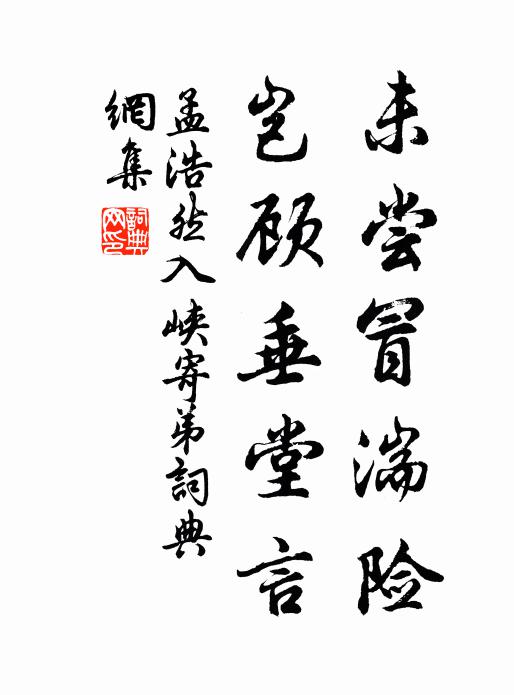 未尝冒湍险
岂顾垂堂言
孟浩然入峡寄弟詞典
網集
詞典
网印